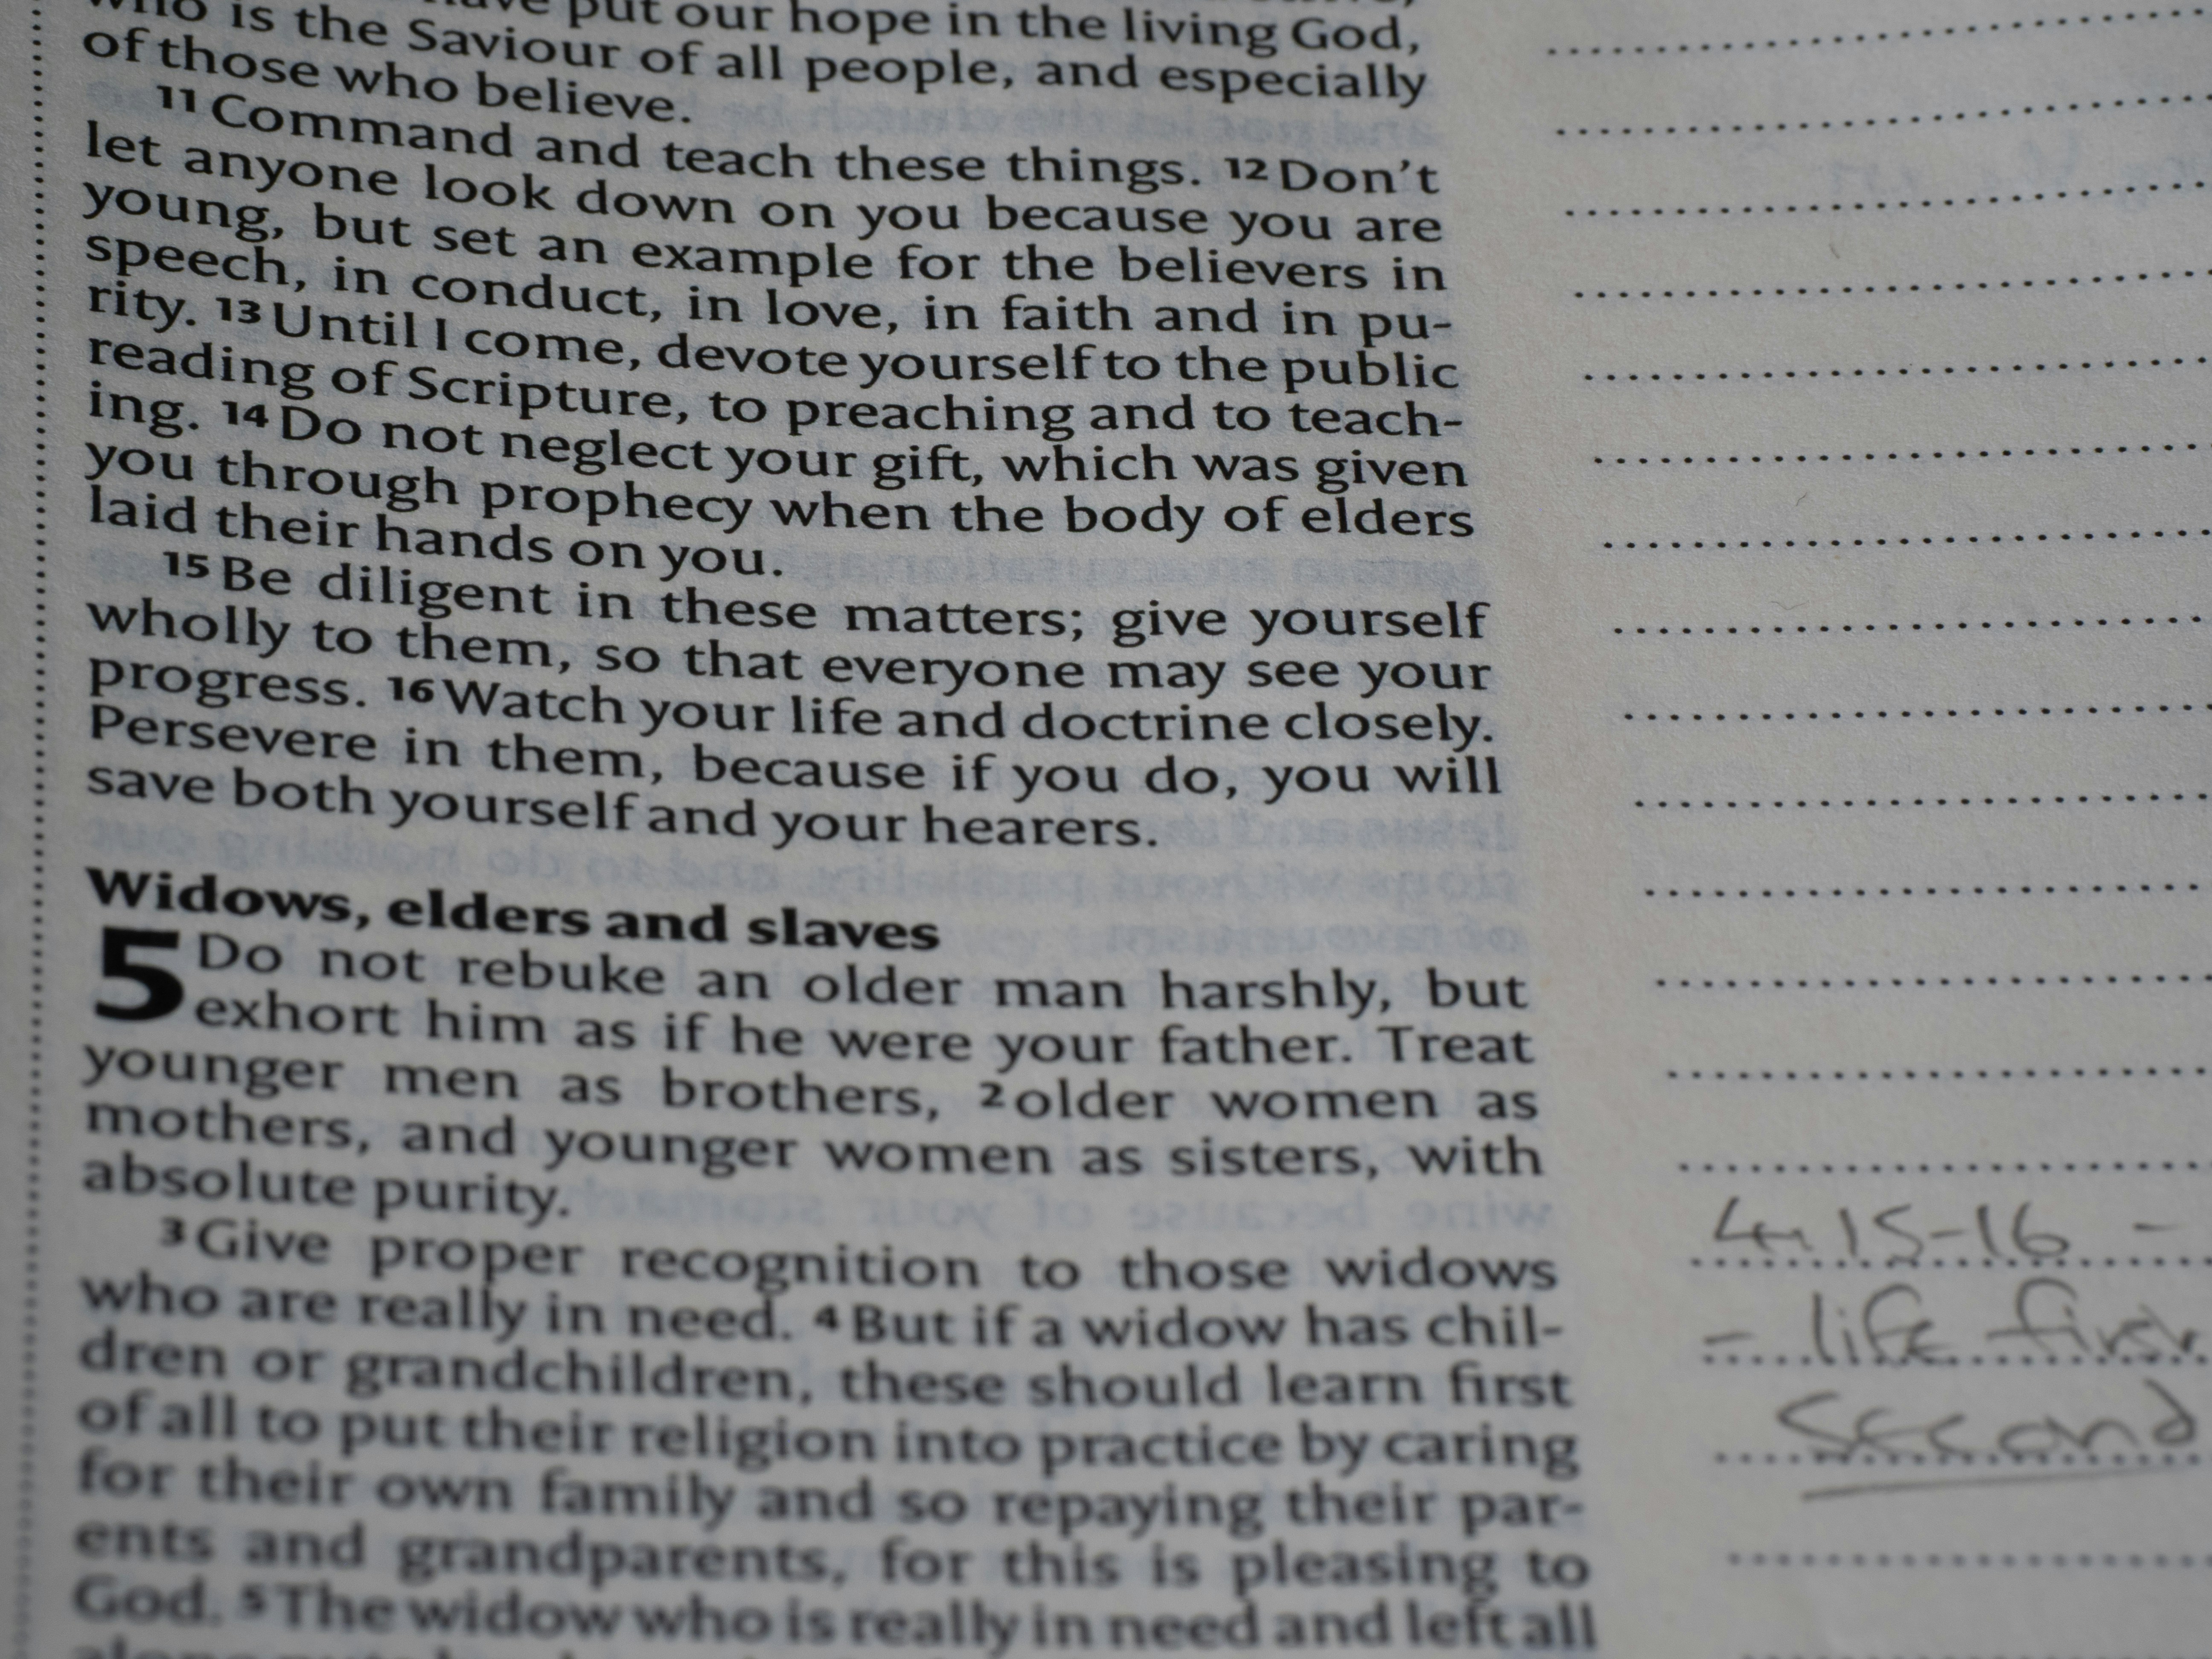 have put our hope in the living God,
who is the Saviour of all people, and especially
of those who believe.
11 Command and teach these things. 12 Don't
let anyone look down on you because you are
young, but set an example for the believers in
speech, in conduct, in love, in faith and in pu-
rity. 13 Until I come, devote yourself to the public
reading of Scripture, to preaching and to teach-
ing. 14 Do not neglect your gift, which was given
you through prophecy when the body of elders
laid their hands on you.
15 Be diligent in these matters; give yourself
wholly to them, so that everyone may see your
progress. 16 Watch your life and doctrine closely.
Persevere in them, because if you do, you will
save both yourself and your hearers.
Widows, elders and slaves
5 Do not rebuke an older man harshly, but
exhort him as if he were your father. Treat
younger men as brothers, 2 older women as
mothers, and younger women as sisters, with
absolute purity.
3 Give proper recognition to those widows
who are really in need. 4 But if a widow has chil-
dren or grandchildren, these should learn first
of all to put their religion into practice by caring
for their own family and so repaying their par-
ents and grandparents, for this is pleasing to
God. 5 The widow who is really in need and left all
4:15-16 -
- life first
second